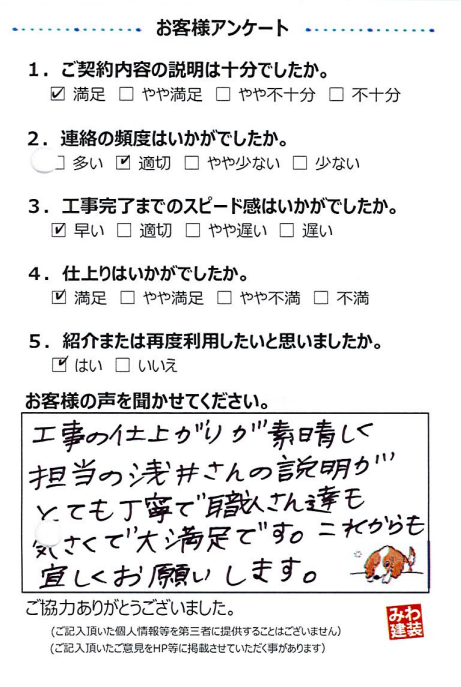 お客様アンケート
1．ご契約内容の説明は十分でしたか。
☑ 満足 □ やや満足 □ やや不十分 □ 不十分
2．連絡の頻度はいかがでしたか。
□ 多い ☑ 適切 □ やや少ない □ 少ない
3．工事完了までのスピード感はいかがでしたか。
☑ 早い □ 適切 □ やや遅い □ 遅い
4．仕上りはいかがでしたか。
☑ 満足 □ やや満足 □ やや不満 □ 不満
5．紹介または再度利用したいと思いましたか。
☑ はい □ いいえ
お客様の声を聞かせてください。
工事の仕上がりが素晴しく
担当の浅井さんの説明が
とても丁寧で職人さん達も
気さくで大満足です。これからも
宜しくお願いします。
ご協力ありがとうございました。
(ご記入頂いた個人情報等を第三者に提供することはございません)
(ご記入頂いたご意見をHP等に掲載させていただく事があります)
みわ
建装